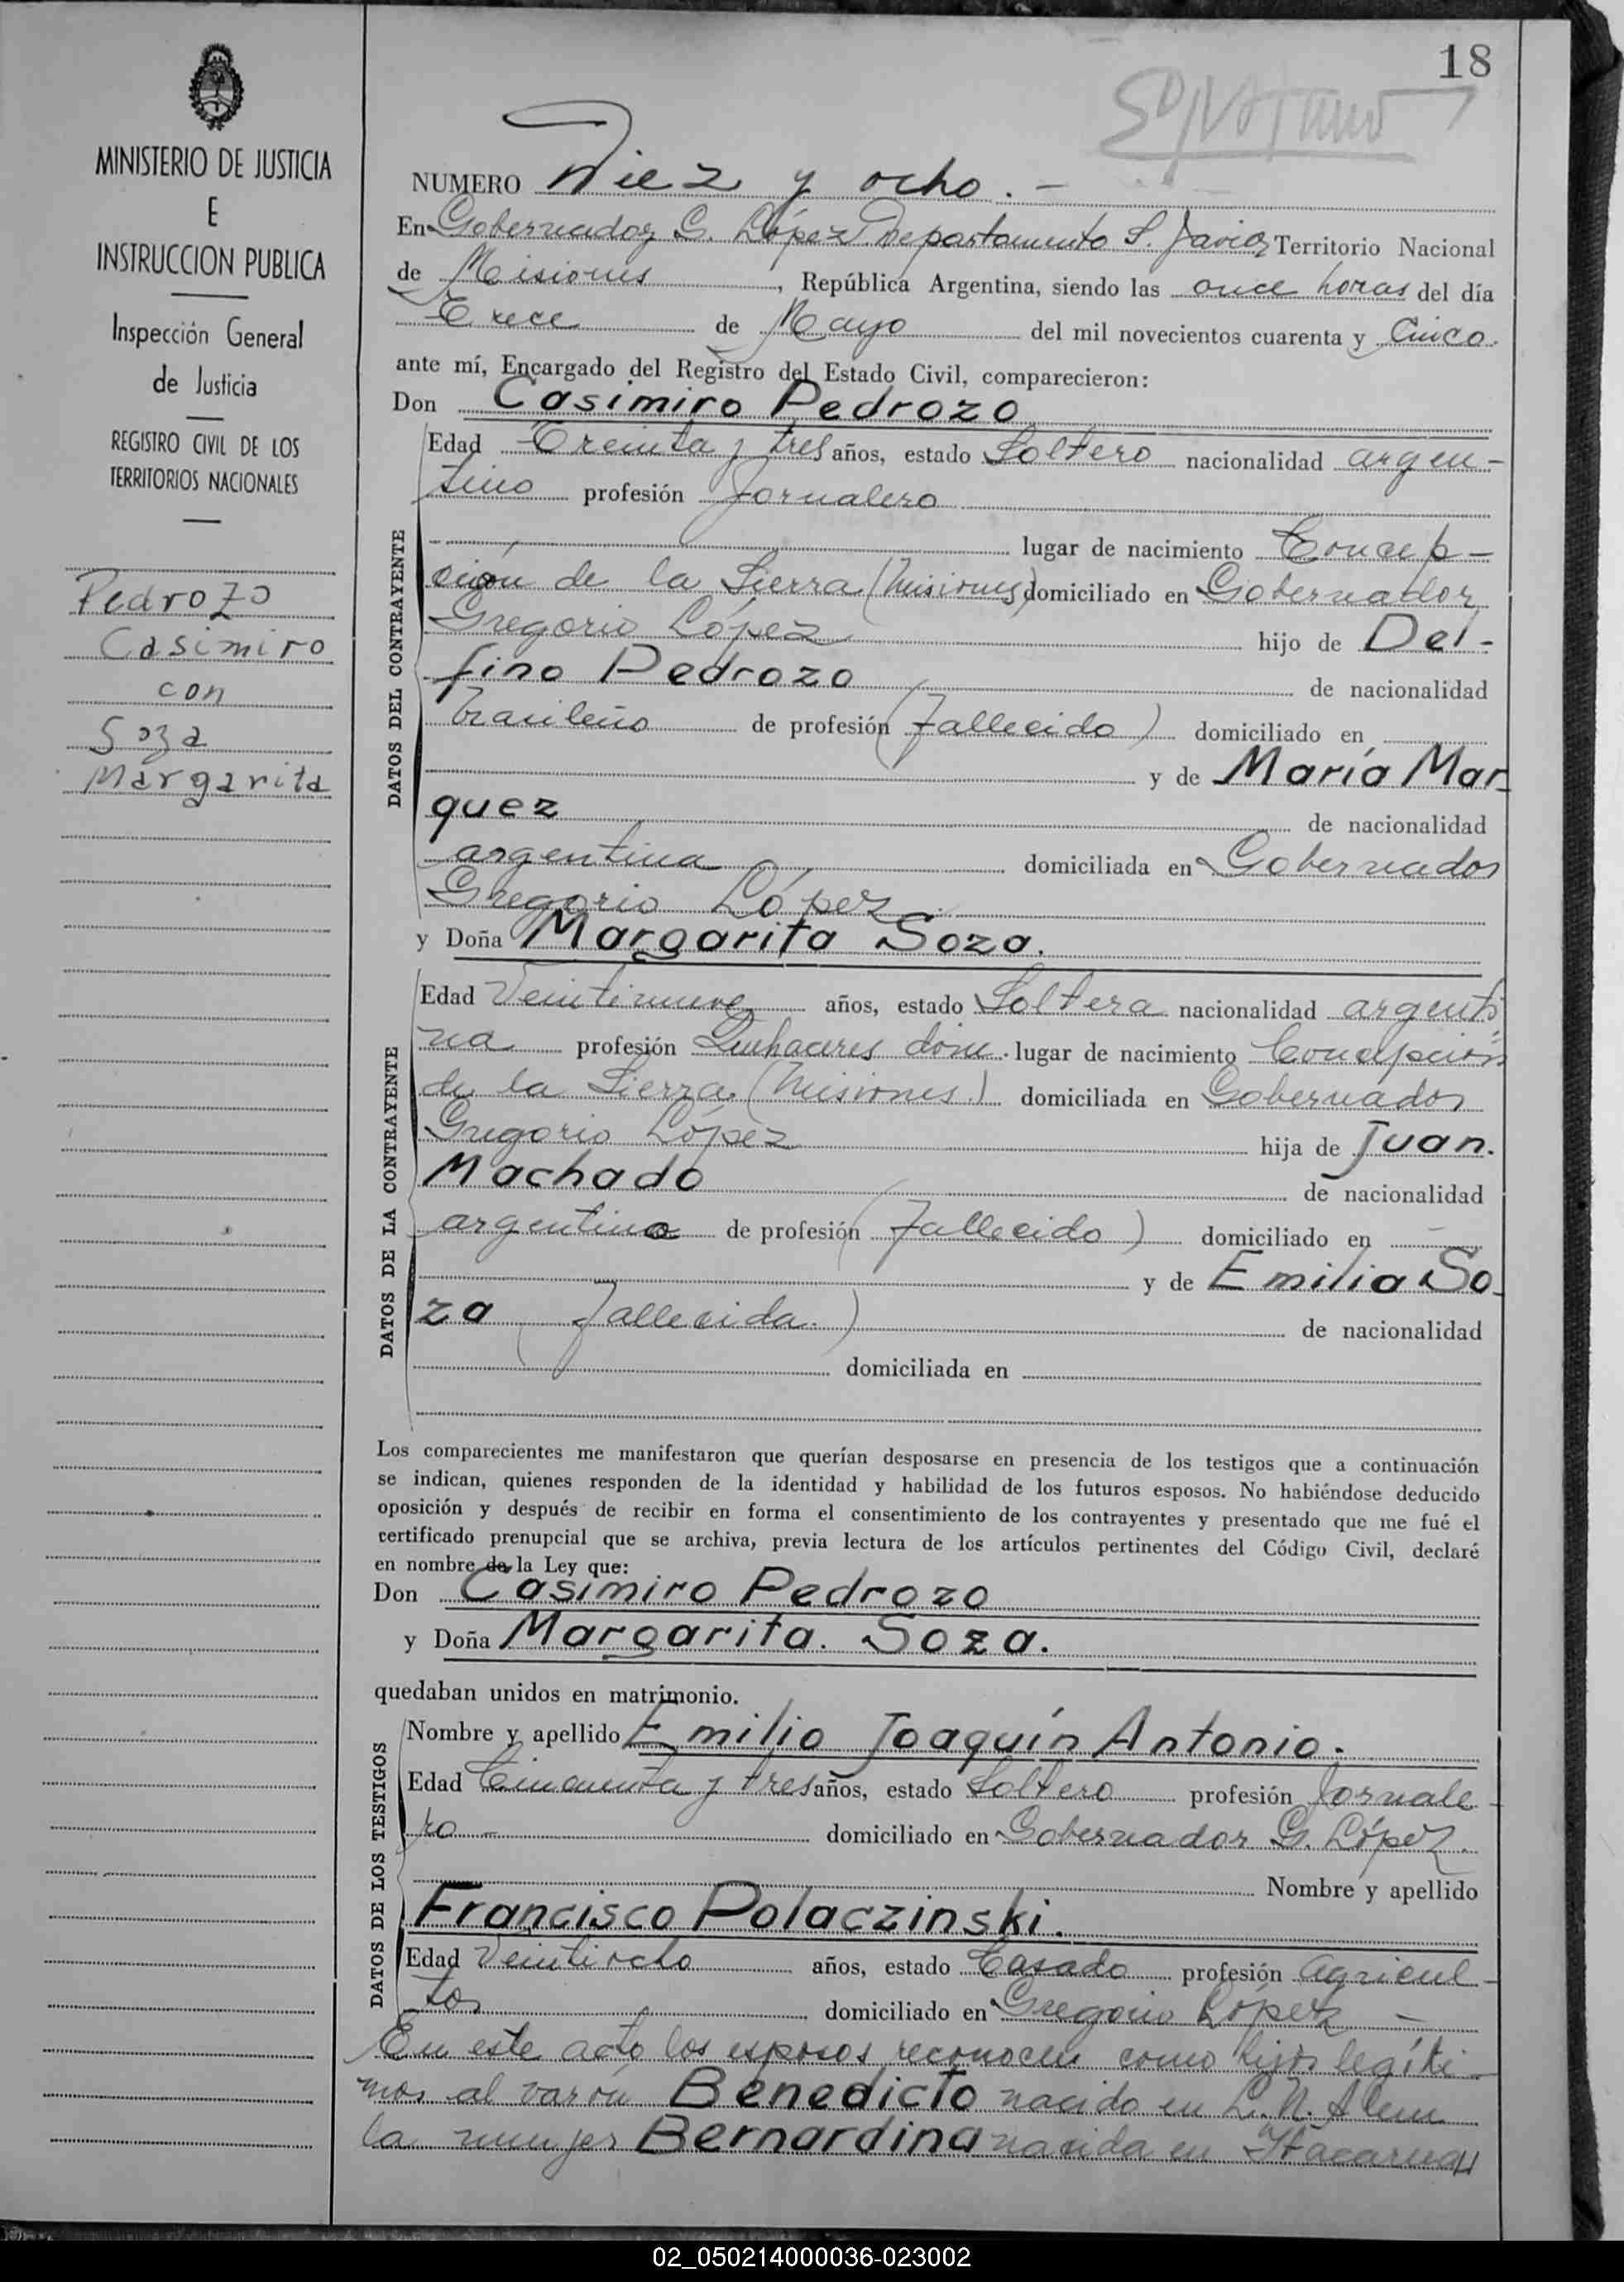 18
MINISTERIO DE JUSTICIA
E
INSTRUCCION PUBLICA
Inspección General
de Justicia
REGISTRO CIVIL DE LOS
TERRITORIOS NACIONALES
Pedrozo
Casimiro
con
Soza
Margarita
NUMERO Diez y ocho.-
En Gobernador G. López Departamento S. Javier Territorio Nacional
de Misiones, República Argentina, siendo las once horas del día
Trece de Mayo del mil novecientos cuarenta y Cinco.
ante mí, Encargado del Registro del Estado Civil, comparecieron:
Don Casimiro Pedrozo
DATOS DEL CONTRAYENTE
Edad Treinta y tres años, estado Soltero nacionalidad argen-
tino profesión Jornalero
lugar de nacimiento Concep-
ción de la Sierra (Misiones) domiciliado en Gobernador
Gregorio López hijo de Del-
fino Pedrozo de nacionalidad
brasileño de profesión (fallecido) domiciliado en
y de María Mar-
quez de nacionalidad
argentina domiciliada en Gobernador
Gregorio López
y Doña Margarita Soza.
DATOS DE LA CONTRAYENTE
Edad Veintinueve años, estado Soltera nacionalidad argenti-
na profesión Quehaceres dom. lugar de nacimiento Concepción
de la Sierra (Misiones) domiciliada en Gobernador
Gregorio López hija de Juan.
Machado de nacionalidad
argentino de profesión (fallecido) domiciliado en -
y de Emilia So-
za (fallecida.) de nacionalidad
domiciliada en
Los comparecientes me manifestaron que querían desposarse en presencia de los testigos que a continuación
se indican, quienes responden de la identidad y habilidad de los futuros esposos. No habiéndose deducido
oposición y después de recibir en forma el consentimiento de los contrayentes y presentado que me fué el
certificado prenupcial que se archiva, previa lectura de los artículos pertinentes del Código Civil, declaré
en nombre de la Ley que:
Don Casimiro Pedrozo
y Doña Margarita. Soza.
quedaban unidos en matrimonio.
DATOS DE LOS TESTIGOS
Nombre y apellido Emilio Joaquín Antonio.
Edad Cincuenta y tres años, estado Soltero profesión Jornale-
ro - domiciliado en Gobernador G. López.
Nombre y apellido
Francisco Polaczinski.
Edad Veintiocho años, estado Casado profesión Agricul-
tor domiciliado en Gregorio López -
En este acto los esposos reconocen como hijos legíti-
mos al varón Benedicto nacido en L. N. Alem
la mujer Bernardina nacida en Itacaruaré
02_050214000036-023002